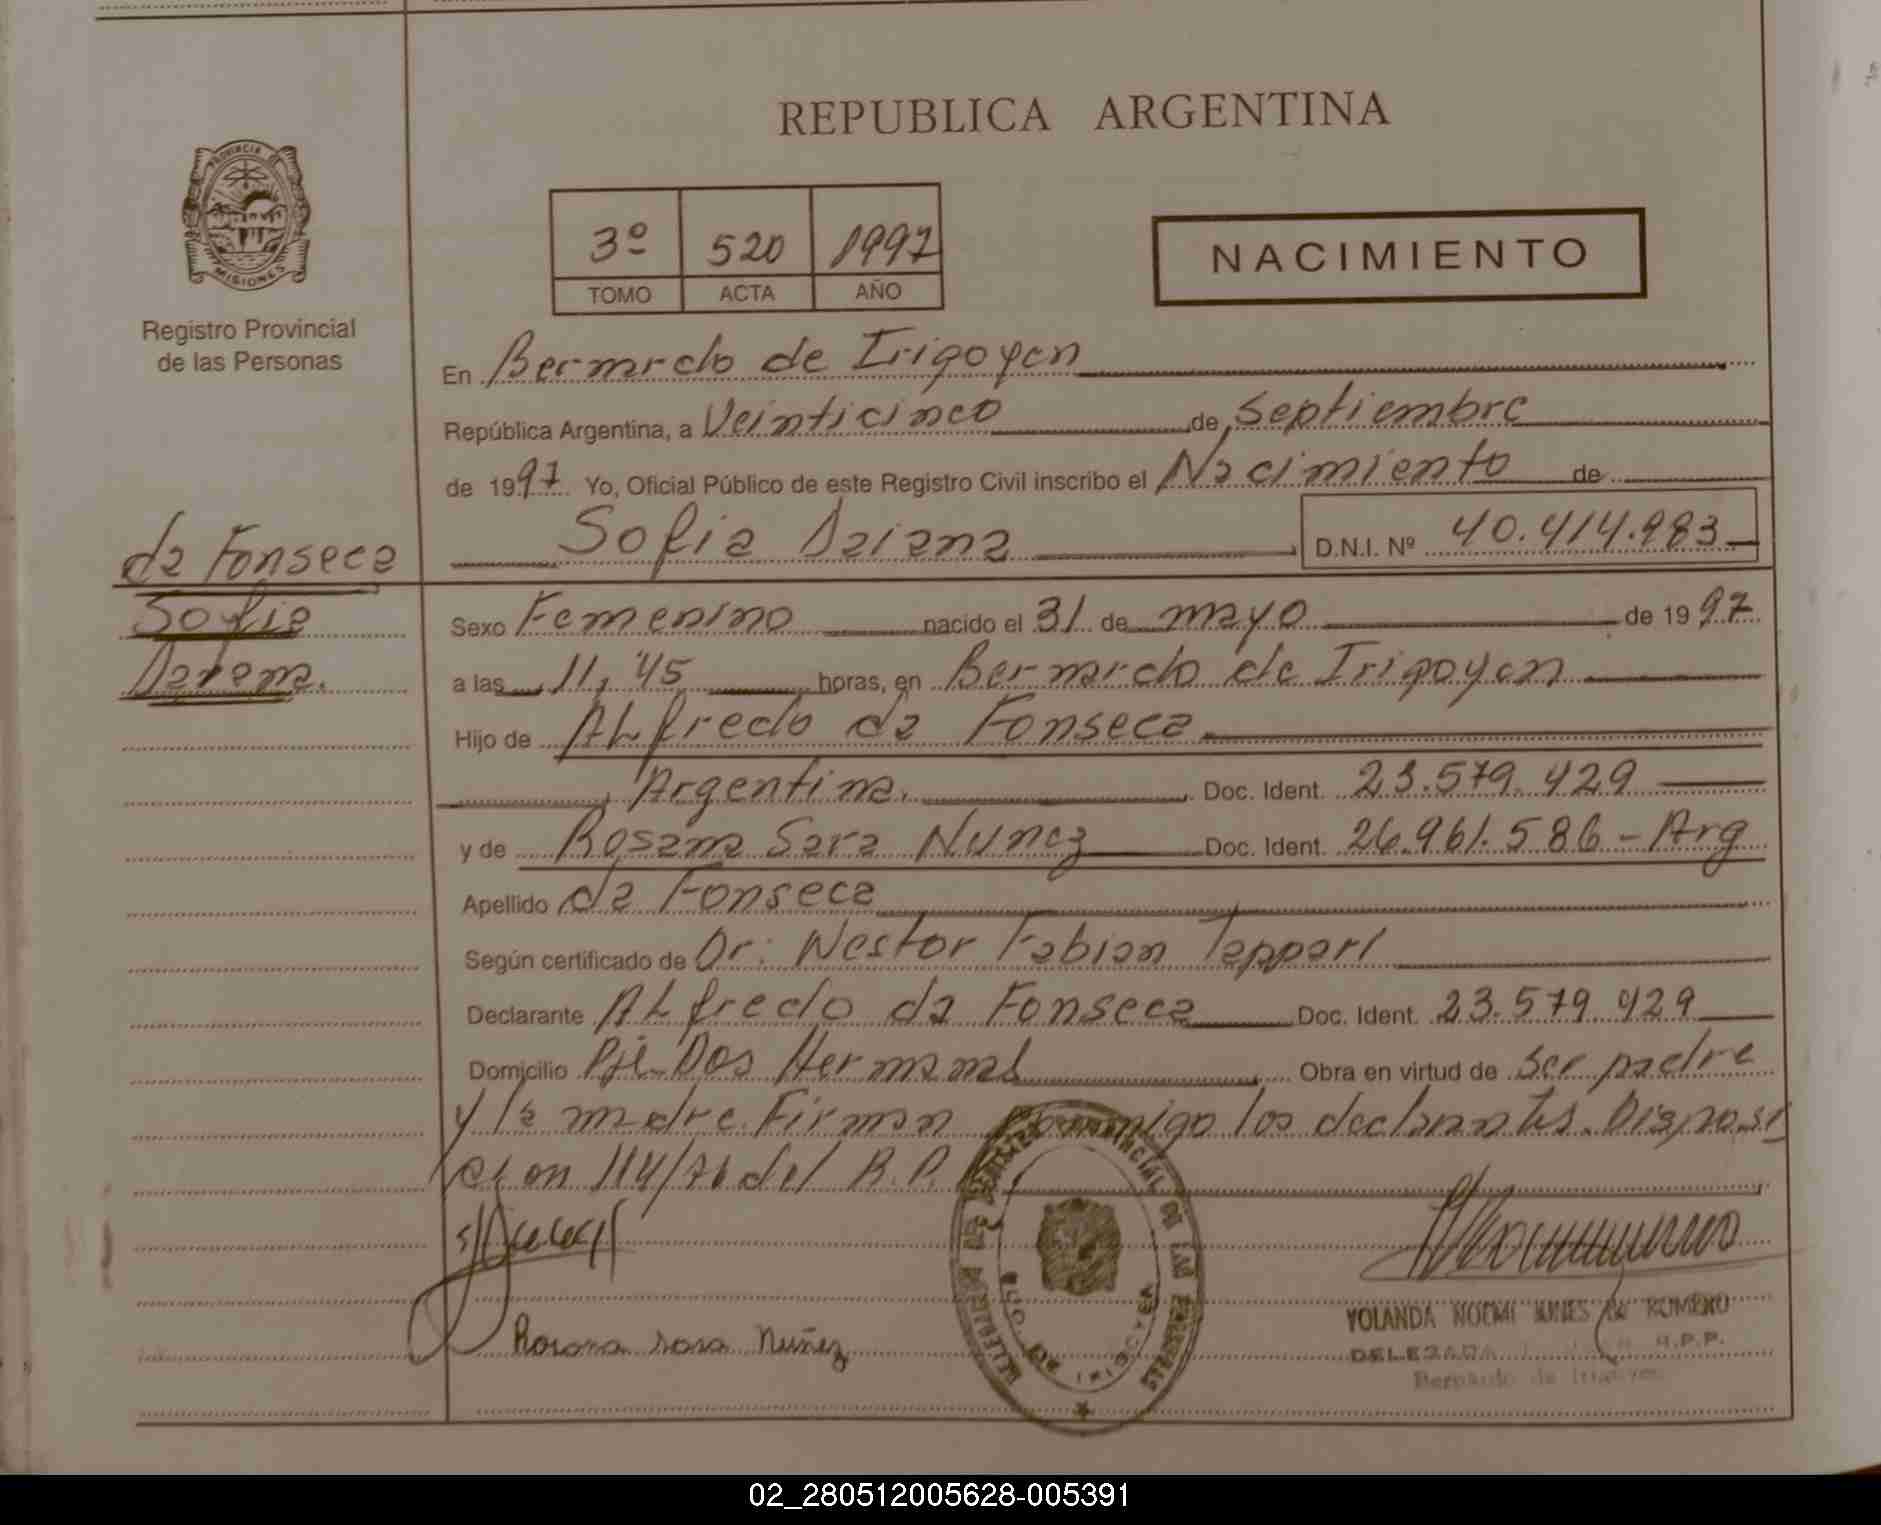 REPUBLICA ARGENTINA
PROVINCIA DE
MISIONES
Registro Provincial
de las Personas
3º 520 1997
TOMO ACTA AÑO
NACIMIENTO
En Bernardo de Irigoyen
República Argentina, a Veinticinco de Septiembre
de 1997 Yo, Oficial Público de este Registro Civil inscribo el Nacimiento de
Sofia Daiana D.N.I. Nº 40.414.983
da Fonseca
Sofia
Daiana.
Sexo Femenino nacido el 31 de mayo de 1997
a las 11,45 horas, en Bernardo de Irigoyen
Hijo de ALfredo da Fonseca
Argentina. Doc. Ident. 23.579.429
y de Rosana Sara Nunez Doc. Ident. 26.961.586 - Arg
Apellido da Fonseca
Según certificado de Dr: Nestor Fabian Tappari
Declarante ALfredo da Fonseca Doc. Ident. 23.579.429
Domicilio Pje Dos Hermanas Obra en virtud de ser padre
y la madre. Firman conmigo los declarantes. Disposi
cion 114/76 del R.P.
Rosana sara Nuñez
YOLANDA NOEMI NUNES de ROMERO
DELEGADA R.P.P.
Bernardo de Irigoyen
02_280512005628-005391